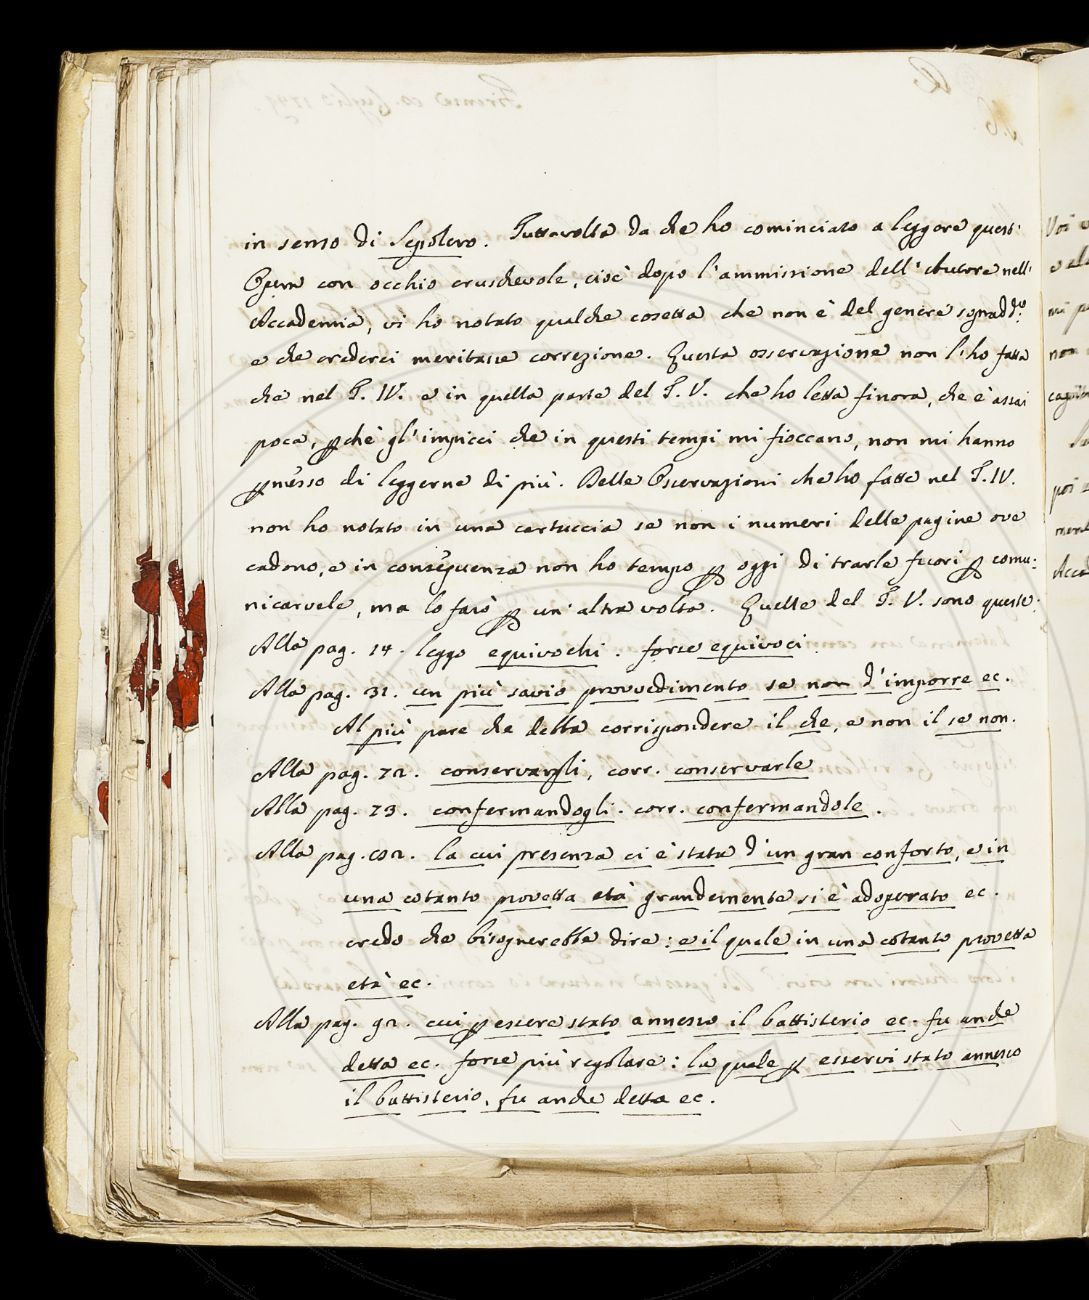 in senso di Sepolcro. Tuttavolta da che ho cominciato a leggere quest'
Opera con occhio cruschevole, cioè dopo l'ammissione dell'Autore nell'
Accademia, vi ho notato qualche cosetta che non è del genere sopradd.º
e che crederei meritasse correzione. Questa osservazione non l'ho fatta
che nel T. IV. e in quella parte del T. V. che ho letta finora, che è assai
poca, pchè gl'impicci che in questi tempi mi fioccano, non mi hanno
pmesso di leggerne di più. Delle Osservazioni che ho fatte nel T. IV.
non ho notato in una cartuccia se non i numeri delle pagine ove
cadono, e in conseguenza non ho tempo p oggi di trarle fuori p comu=
nicarvele, ma lo farò p un'altra volta. Quelle del T. V. sono queste:
Alla pag. 14. leggo equivochi. forse equivoci.
Alla pag. 31. un più savio provvedimento se non d'imporre ec.
Al più pare che debba corrispondere il che, e non il se non.
Alla pag. 72. conservargli, corr. conservarle
Alla pag. 73. confermandogli. corr. confermandole.
Alla pag. la cui presenza ci è stata d'un gran conforto, e in
una cotanto provetta età grandemente si è adoperato ec.
credo che bisognerebbe dire: e il quale in una cotanto provetta
età ec.
Alla pag. 92. cui p essere stato annesso il battisterio ec. fu anche
detta ec. forse più regolare: la quale p esservi stato annesso
il battisterio, fu anche detta ec.